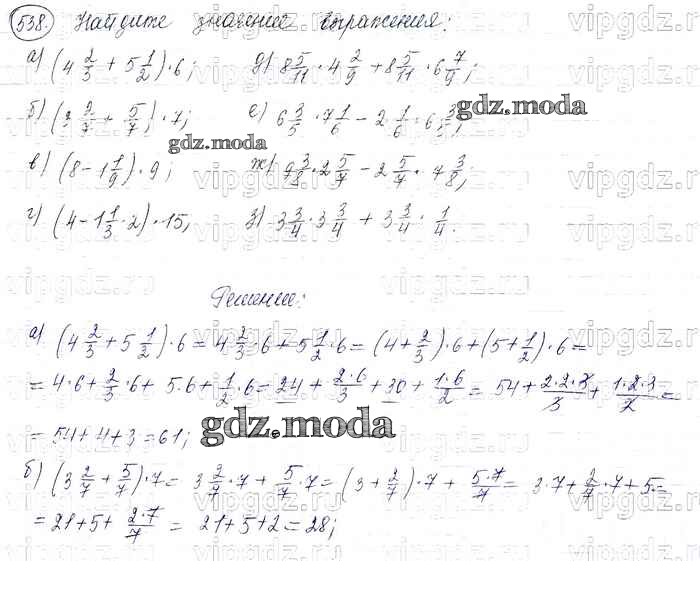 538. Найдите значение выражения:
а) (4 2/3 + 5 1/2)·6; д) 8 5/11 · 4 2/9 + 8 5/11 · 6 7/9;
б) (3 2/7 + 5/7)·7; е) 6 3/5 · 7 1/6 − 2 1/6 · 6 3/5;
gdz.moda
gdz.moda
в) (8 − 1 1/9)·9; ж) 9 3/8 · 2 5/7 − 2 5/7 · 7 3/8;
г) (4 − 1 1/3 · 2)·15; з) 3 3/4 · 3 3/4 + 3 3/4 · 1/4.
Решение:
а) (4 2/3 + 5 1/2)·6 = 4 2/3 · 6 + 5 1/2 · 6 = (4 + 2/3)·6 + (5 + 1/2)·6 =
= 4·6 + 2/3 · 6 + 5·6 + 1/2 · 6 = 24 + 2·6/3 + 30 + 1·6/2 = 54 + 2·2·3/3 + 1·2·3/2 =
= 54 + 4 + 3 = 61;
gdz.moda
б) (3 2/7 + 5/7)·7 = 3 2/7 · 7 + 5/7 · 7 = (3 + 2/7)·7 + 5·7/7 = 3·7 + 2/7 · 7 + 5 =
= 21 + 5 + 2·7/7 = 21 + 5 + 2 = 28;
vipgdz.ru